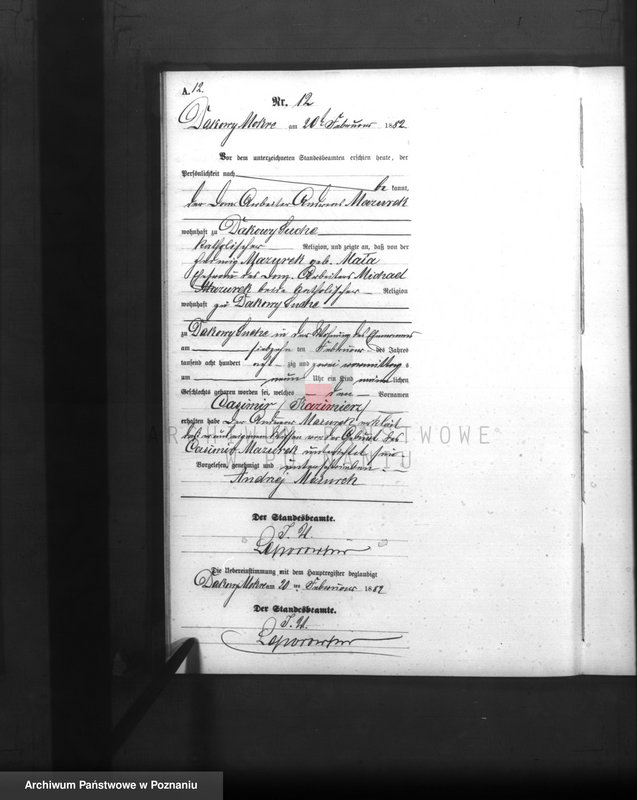 A. 12.
Nr. 12
Dakowy Mokre am 20t Februar 1882
Vor dem unterzeichneten Standesbeamten erschien heute, der
Persönlichkeit nach
be kannt,
der Dom. Arbeiter Andreas Mazurek
wohnhaft zu Dakowy Suche
katholischer Religion, und zeigte an, daß von der
Hedwig Mazurek geb. Mała
Ehefrau des Dom. Arbeiters Michael
Mazurek beide katholischer Religion
wohnhaft zu Dakowy Suche
zu Dakowy Suche in der Wohnung des
am siebzehn ten Februar des Jahres
tausend acht hundert acht zig und zwei Vormittag s
um neun Uhr ein Kind männ lichen
Geschlechts geboren worden sei, welches den Vornamen
Casimir /Kazimierz/
erhalten habe. Der Andreas Mazurek erklärt
daß er aus eigenem Wissen von der Geburt des
Casimir Mazurek unterrichtet sei
Vorgelesen, genehmigt und unterschrieben
Andrzej Mazurek
ARCHIWUM PAŃSTWOWE
W POZNANIU
Der Standesbeamte.
Die Uebereinstimmung mit dem Hauptregister beglaubigt
Dakowy Mokre am 20 ten Februar 1882
Der Standesbeamte.
Archiwum Państwowe w Poznaniu